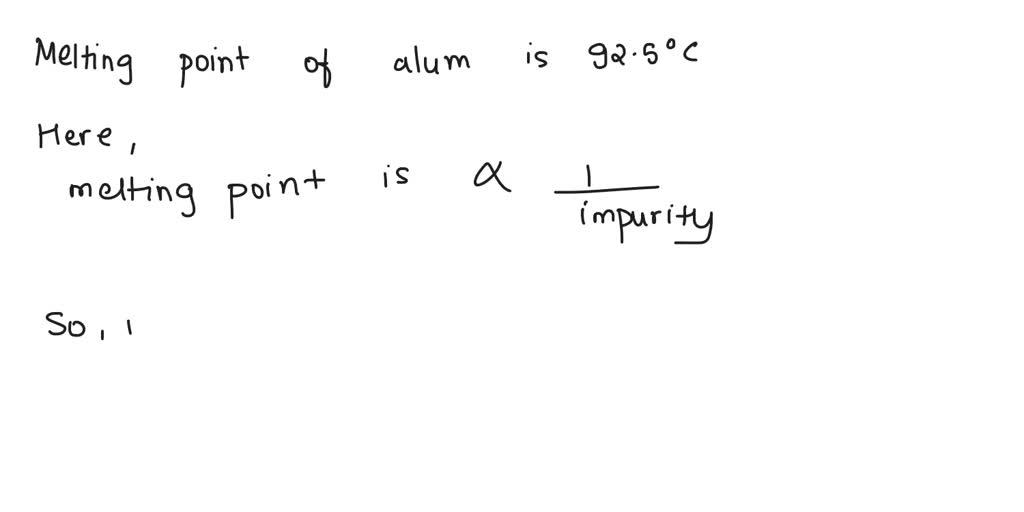 Melting point of alum is 92.5°C
Here,
melting point is α 1
impurity
So, I